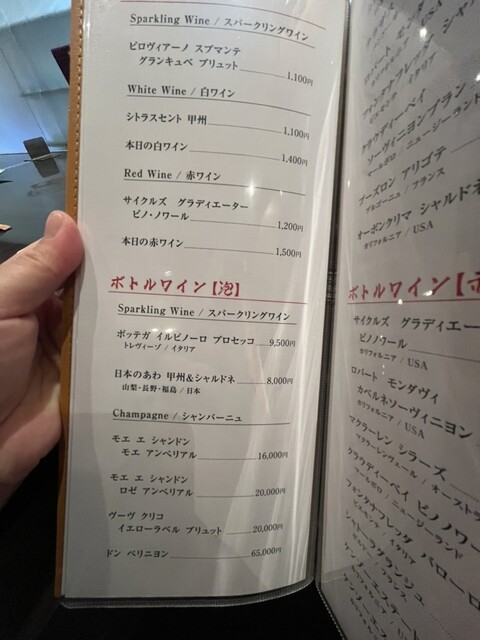 Sparkling Wine / スパークリングワイン
ピロヴィアーノ スプマンテ
グランキュベ ブリュット 1,100円
White Wine / 白ワイン
シトラスセント 甲州 1,100円
本日の白ワイン 1,400円
Red Wine / 赤ワイン
サイクルズ グラディエーター
ピノ・ノワール 1,200円
本日の赤ワイン 1,500円
ボトルワイン【泡】
Sparkling Wine / スパークリングワイン
ボッテガ イルピノーロ プロセッコ 9,500円
トレヴィーゾ / イタリア
日本のあわ 甲州&シャルドネ 8,000円
山梨・長野・福島 / 日本
Champagne / シャンパーニュ
モエ エ シャンドン
モエ アンペリアル 16,000円
モエ エ シャンドン
ロゼ アンペリアル 20,000円
ヴーヴ クリコ
イエローラベル ブリュット 20,000円
ドン ペリニヨン 65,000円
イタリア
クラウディーベイ
ソーヴィニヨンブラン
マールボロ / ニュージーランド
ブーズロン アリゴテ
ブルゴーニュ / フランス
オーボンクリマ シャルドネ
カリフォルニア / USA
ボトルワイン【赤
サイクルズ グラディエー
ピノノワール
カリフォルニア / USA
ロバート モンダヴィ
カベルネソーヴィニヨン
カリフォルニア / USA
マクラーレン シラーズ
マクラーレンヴェール / オースト
クラウディーベイ ピノノワー
マールボロ / ニュージーランド
フォンタナフレッダ バローロ
ピエモンテ / イタリア